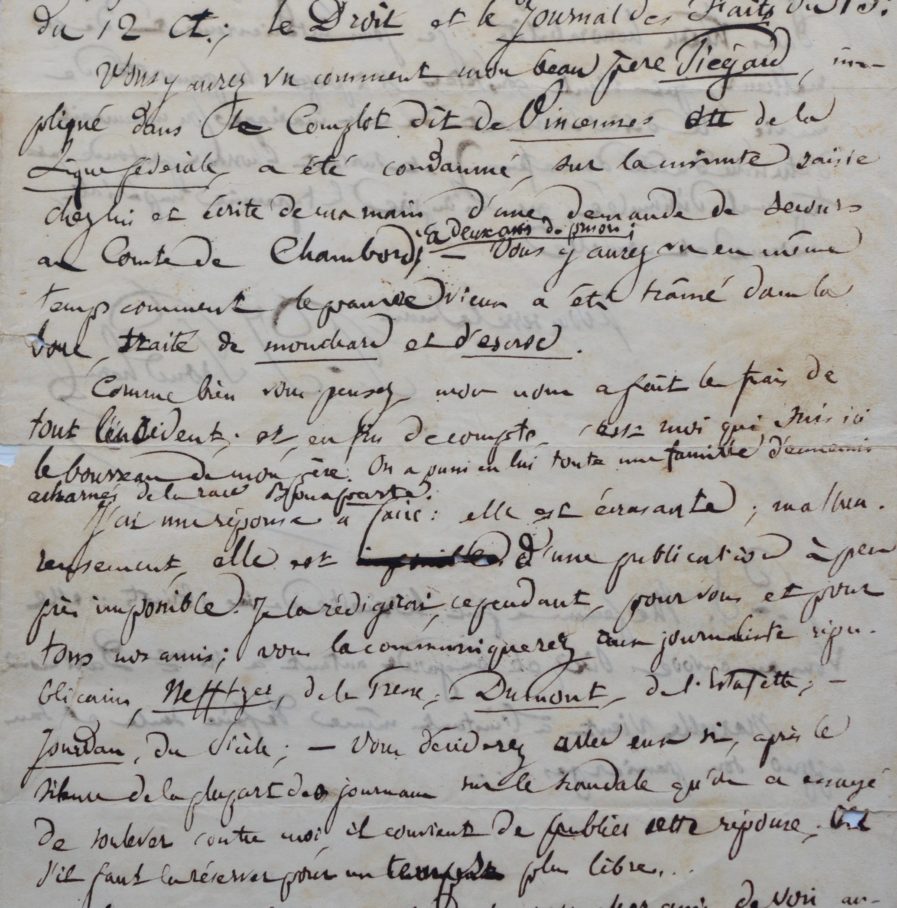 du 12 Ct.; le Droit et le Journal des Faits du 13.
Vous y aurez vu comment mon beau père Piégard, im-
pliqué dans le Complot dit de Vincennes et de la
Ligue fédérale, a été condamné, sur la minute saisie
chez lui et écrite de ma main, d'une demande de secours
au Comte de Chambord, à deux ans de prison; — Vous y aurez vu en même
temps comment le pauvre vieux a été traîné dans la
boue, traité de mouchard et d'escroc.
Comme bien vous pensez, mon nom a fait les frais de
tout l'incident; et, en fin de compte, c'est moi qui suis ici
le bourreau de mon père. On a puni en lui toute une famille d'ennemis
acharnés de la race Bonaparte.
J'ai une réponse à faire: elle est écrasante; malheu-
reusement, elle est d'une publication à peu
près impossible. Je la rédigerai, cependant, pour vous et pour
tous nos amis; vous la communiquerez aux journalistes répu-
blicains, Nefftzer, de la Presse; — Dumont, de l'Estafette; —
Jourdan, du Siècle; — Vous déciderez avec eux si, après le
silence de la plupart des journaux sur le scandale qu'on a essayé
de soulever contre moi, il convient de publier cette réponse,
s'il faut la réserver pour un temps plus libre...
de voir au-